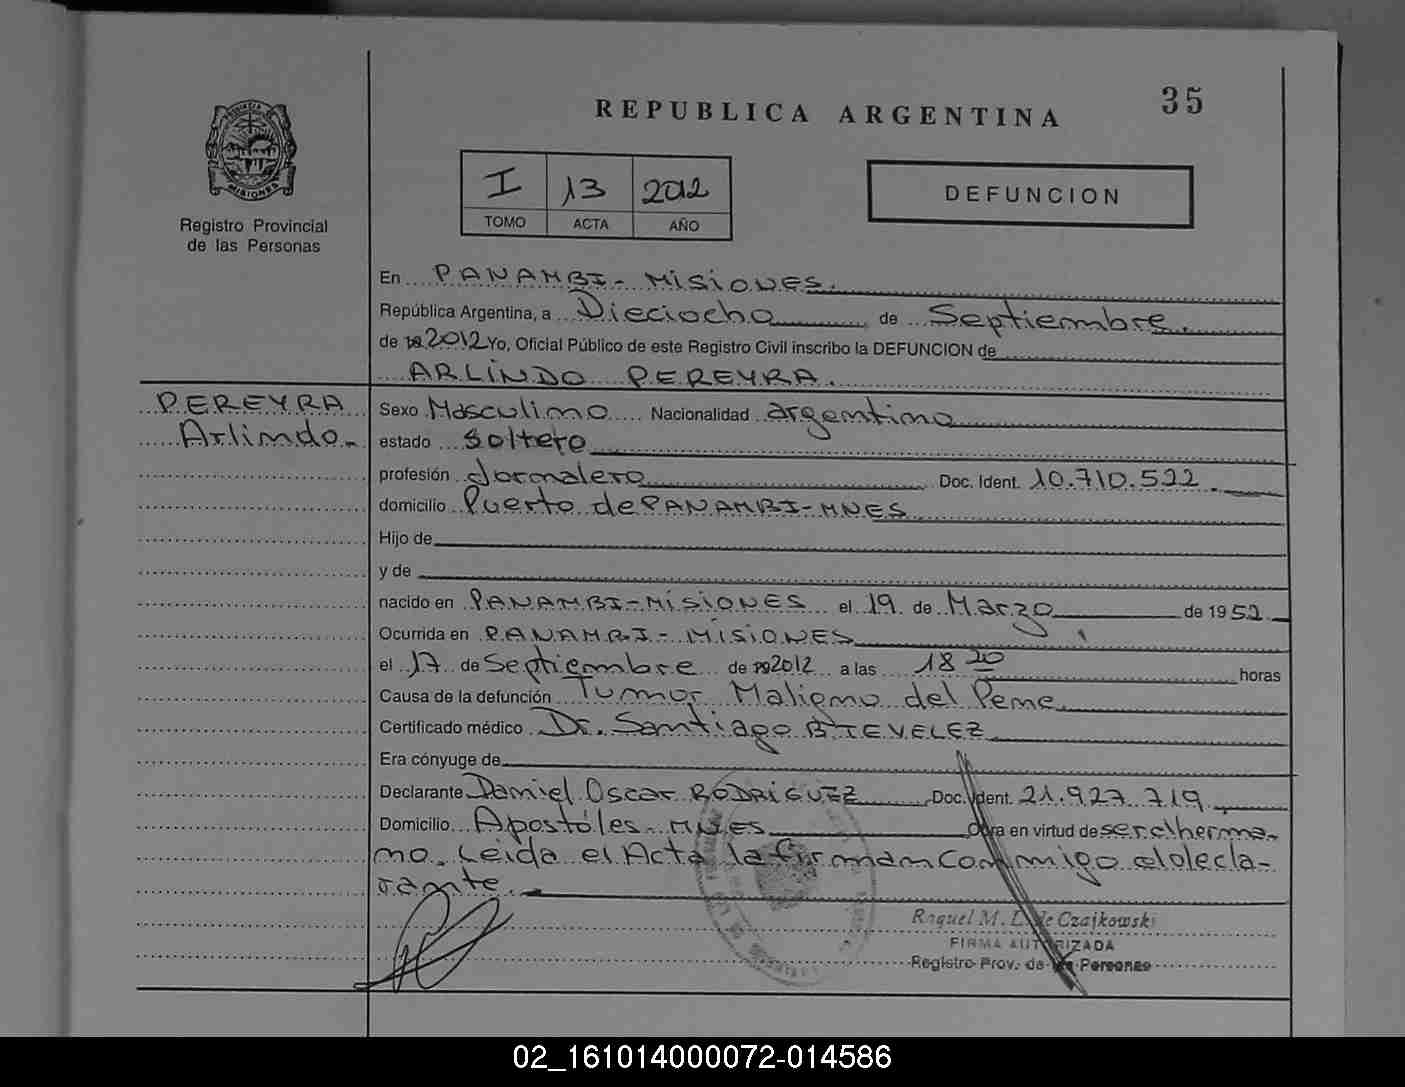 35
REPUBLICA ARGENTINA
PROVINCIA DE
MISIONES
Registro Provincial
de las Personas
I 13 2012
TOMO ACTA AÑO
DEFUNCION
En PANAMBI - MISIONES.
República Argentina, a Dieciocho de Septiembre.
de 2012 Yo, Oficial Público de este Registro Civil inscribo la DEFUNCION de
ARLINDO PEREYRA.
PEREYRA
Arlindo.
Sexo Masculino Nacionalidad argentino
estado Soltero
profesión Jornalero Doc. Ident. 10.710.522.
domicilio Puerto de PANAMBI-MNES
Hijo de
y de
nacido en PANAMBI-MISIONES el 19 de Marzo de 1952
Ocurrida en PANAMBI - MISIONES
el 17 de Septiembre de 2012 a las 18 20 horas
Causa de la defunción Tumor Maligno del Pene
Certificado médico Dr. Santiago
Era cónyuge de
Declarante Daniel Oscar RODRIGUEZ Doc. Ident. 21.927.719
Domicilio Apostóles - MNES Obra en virtud de ser el herma-
no. Leida el Acta la firman conmigo el decla-
rante.
Raquel M. de Czajkowski
FIRMA AUTORIZADA
Registro Prov. de las Personas
02_161014000072-014586